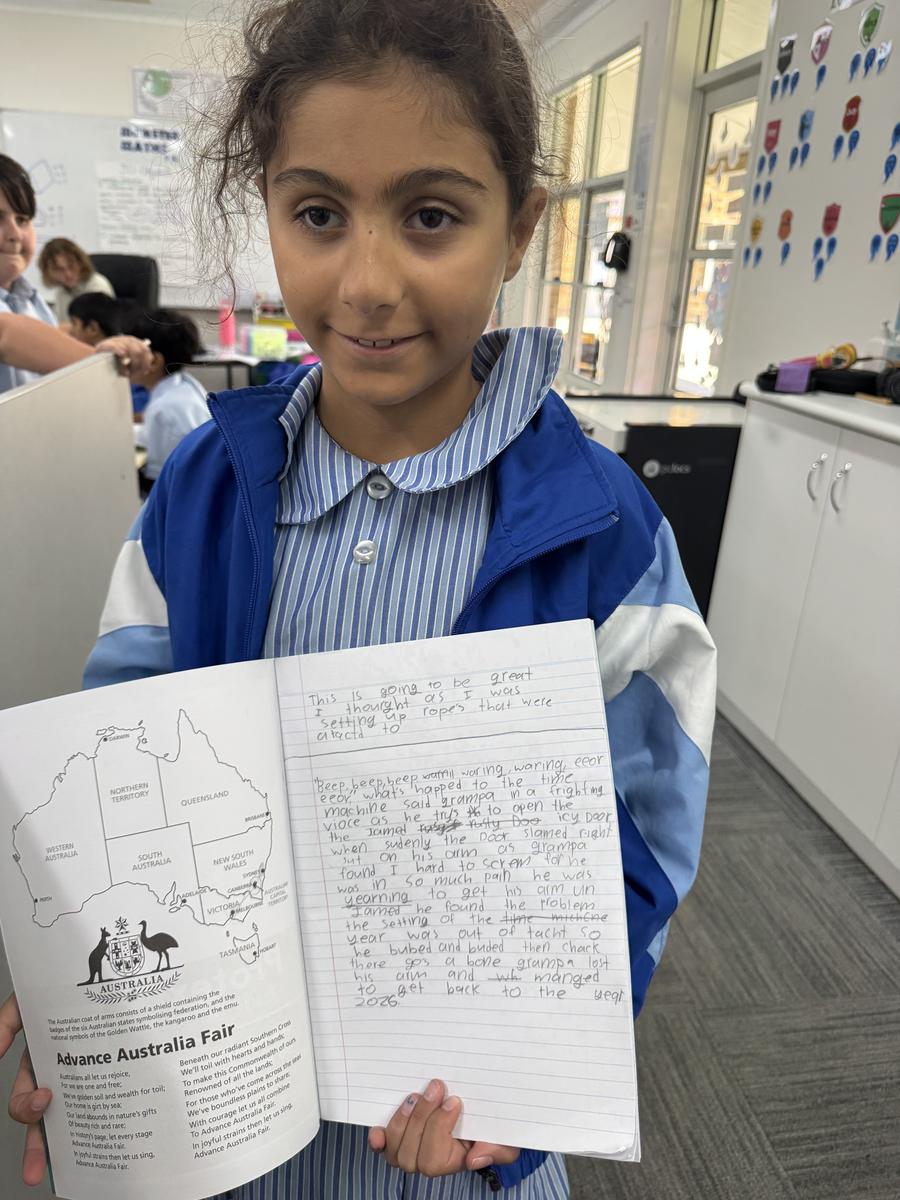 This is going to be great
I thought as I was
setting up ropes that were
atactd to
"Beep, beep, beep warnil waring, waring, eeor
eeor, what's happed to the time
machine said grampa in a frighting
vioce as he trys to open the
the Jamed rusty Doo icy Door
when sudenly the Door slamed right
sut on his arm as grampa
found I hard to screm for he
was in so much pain he was
yearning to get his arm un
Jamed he found the problem
the setting of the time michine
year was out of tacht so
he bubed and buded then chack
there gos a bone grampa lost
his arm and wh manged
to get back to the year
2026.
DARWIN
NORTHERN
TERRITORY
QUEENSLAND
BRISBANE
WESTERN
AUSTRALIA
SOUTH
AUSTRALIA
NEW SOUTH
WALES
PERTH
ADELAIDE
SYDNEY
CANBERRA
AUSTRALIAN
CAPITAL
TERRITORY
VICTORIA
MELBOURNE
TASMANIA
HOBART
AUSTRALIA
The Australian coat of arms consists of a shield containing the
badges of the six Australian states symbolising federation, and the
national symbols of the Golden Wattle, the kangaroo and the emu.
Advance Australia Fair
Australians all let us rejoice,
For we are one and free;
We've golden soil and wealth for toil;
Our home is girt by sea;
Our land abounds in nature's gifts
Of beauty rich and rare;
In history's page, let every stage
Advance Australia Fair.
In joyful strains then let us sing,
Advance Australia Fair.
Beneath our radiant Southern Cross
We'll toil with hearts and hands;
To make this Commonwealth of ours
Renowned of all the lands;
For those who've come across the seas
We've boundless plains to share;
With courage let us all combine
To Advance Australia Fair.
In joyful strains then let us sing,
Advance Australia Fair.